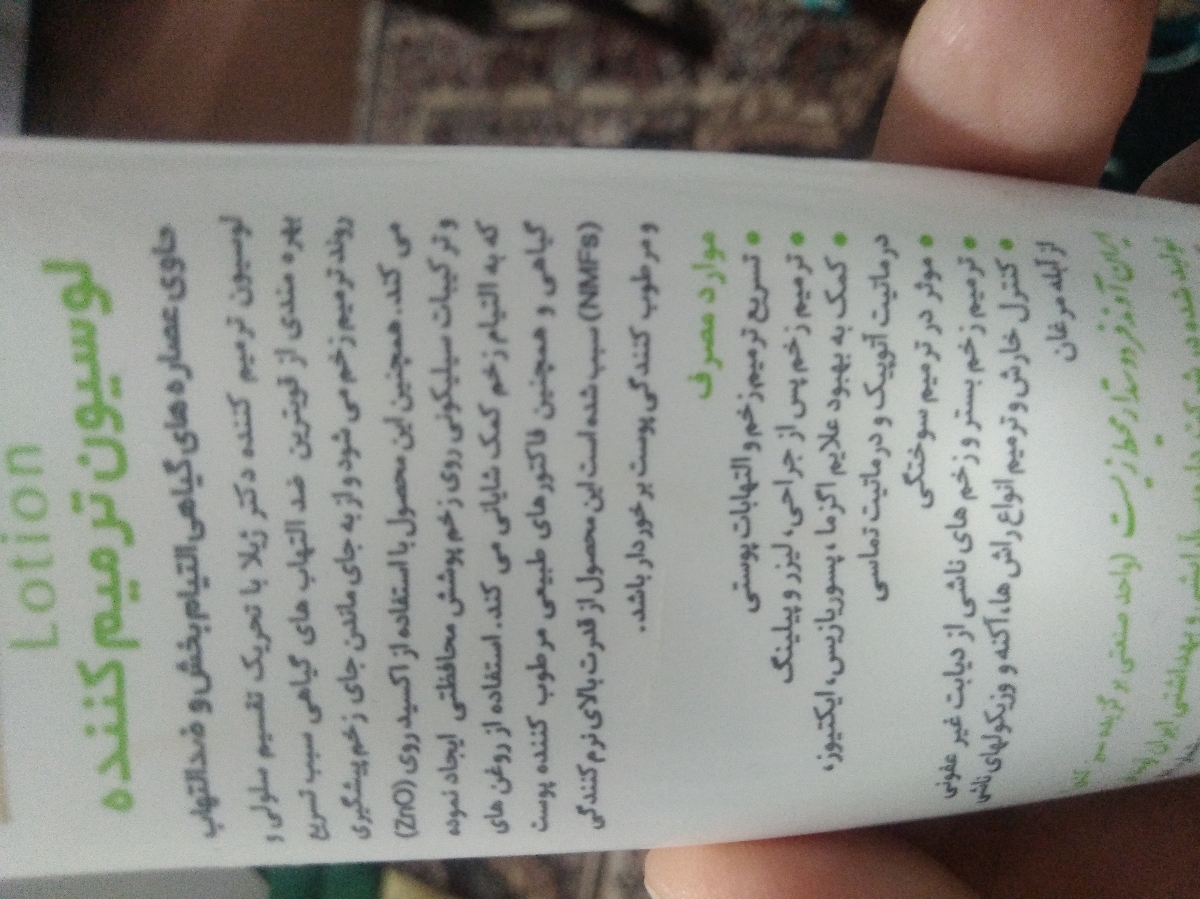 Lotion
لوسیون ترمیم کننده
حاوی عصاره های گیاهی التیام بخش و ضدالتهاب
لوسیون ترمیم کننده دکتر ژیلا با تحریک تقسیم سلولی و
بهره مندی از قویترین ضد التهاب های گیاهی سبب تسریع
روند ترمیم زخم می شود و از به جای ماندن جای زخم پیشگیری
می کند. همچنین این محصول با استفاده از اکسید روی (ZnO)
و ترکیبات سیلیکونی روی زخم پوشش محافظتی ایجاد نموده
که به التیام زخم کمک شایانی می کند. استفاده از روغن های
گیاهی و همچنین فاکتورهای طبیعی مرطوب کننده پوست
(NMFs) سبب شده است این محصول از قدرت بالای نرم کنندگی
و مرطوب کنندگی پوست برخوردار باشد.
موارد مصرف
• تسریع ترمیم زخم و التهابات پوستی
• ترمیم زخم پس از جراحی، لیزر و پیلینگ
• کمک به بهبود علایم اگزما، پسوریازیس، ایکتیوز،
درماتیت آتوپیک و درماتیت تماسی
• موثر در ترمیم سوختگی
• ترمیم زخم بستر و زخم های ناشی از دیابت غیر عفونی
• کنترل خارش و ترمیم انواع راش ها، آکنه و وزیکولهای ناشی
از آبله مرغان
ایران آوندفر دوستدار محیط زیست (واحد صنعتی برگزیده سبز
تولید شده در شرکت آرایشی و بهداشتی ایران آوندفر